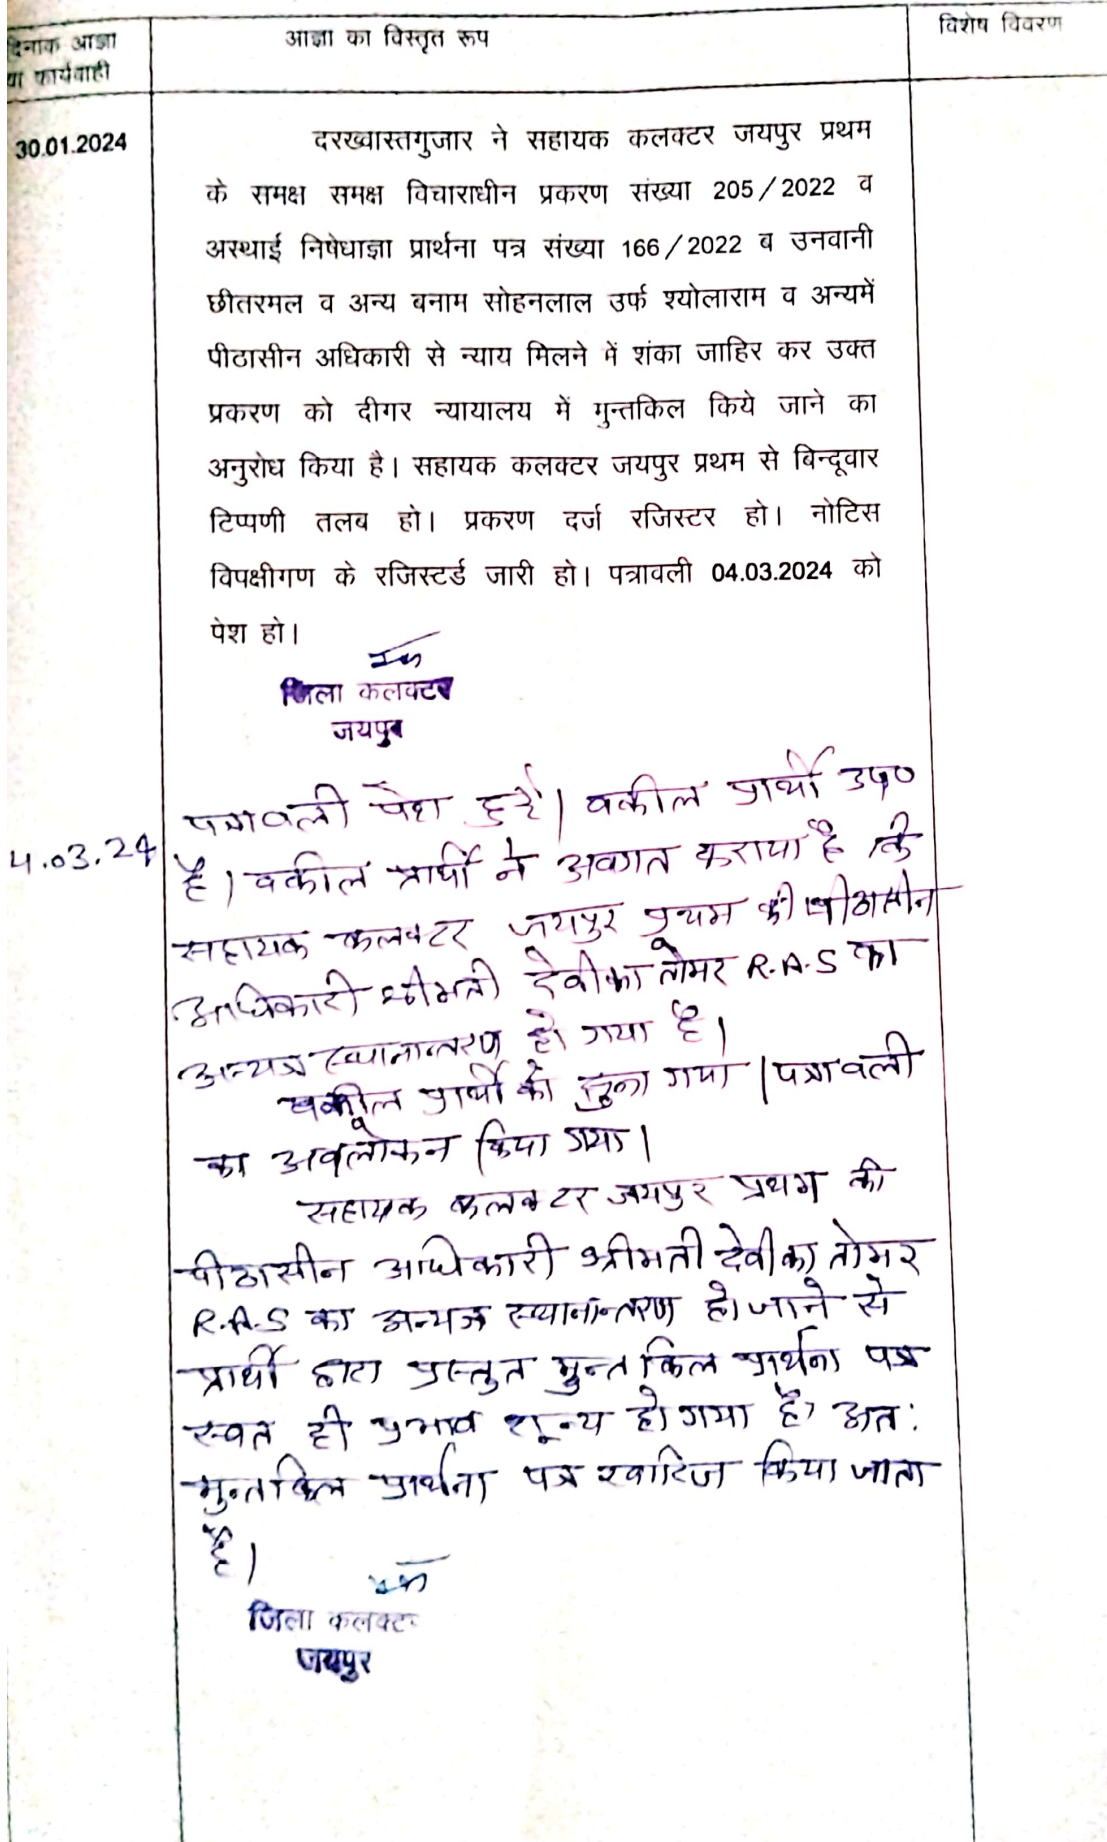 दिनाक आज्ञा
या कार्यवाही
आज्ञा का विस्तृत रूप
विशेष विवरण
30.01.2024
दरख्वास्तगुजार ने सहायक कलक्टर जयपुर प्रथम
के समक्ष समक्ष विचाराधीन प्रकरण संख्या 205/2022 व
अस्थाई निषेधाज्ञा प्रार्थना पत्र संख्या 166/2022 ब उनवानी
छीतरमल व अन्य बनाम सोहनलाल उर्फ श्योलाराम व अन्यमें
पीठासीन अधिकारी से न्याय मिलने में शंका जाहिर कर उक्त
प्रकरण को दीगर न्यायालय में मुन्तकिल किये जाने का
अनुरोध किया है। सहायक कलक्टर जयपुर प्रथम से बिन्दूवार
टिप्पणी तलब हो। प्रकरण दर्ज रजिस्टर हो। नोटिस
विपक्षीगण के रजिस्टर्ड जारी हो। पत्रावली 04.03.2024 को
पेश हो।
जिला कलक्टर
जयपुर
4.03.24
पत्रावली पेश हुई। वकील प्रार्थी उप०
है। वकील प्रार्थी ने अवगत कराया है कि
सहायक कलक्टर जयपुर प्रथम की पीठासीन
अधिकारी श्रीमती देवीका तोमर R.A.S का
अन्यत्र स्थानान्तरण हो गया है।
वकील प्रार्थी को सुना गया। पत्रावली
का अवलोकन किया गया।
सहायक कलक्टर जयपुर प्रथम की
पीठासीन अधिकारी श्रीमती देवीका तोमर
R.A.S का अन्यत्र स्थानान्तरण हो जाने से
प्रार्थी द्वारा प्रस्तुत मुन्तकिल प्रार्थना पत्र
स्वत ही प्रभाव शून्य हो गया है, अत:
मुन्तकिल प्रार्थना पत्र खारिज किया जाता
है।
जिला कलक्टर
जयपुर